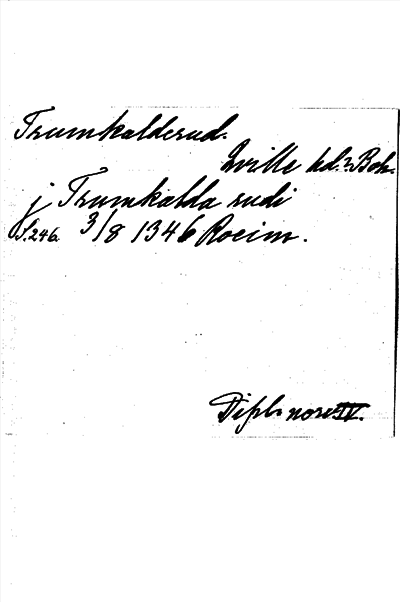 Trumkalderud.
Qville hd.? Boh.
j Trumkalda rudi
S.246. 3/8 1346 Roeim.
Dipl. norv. IV.